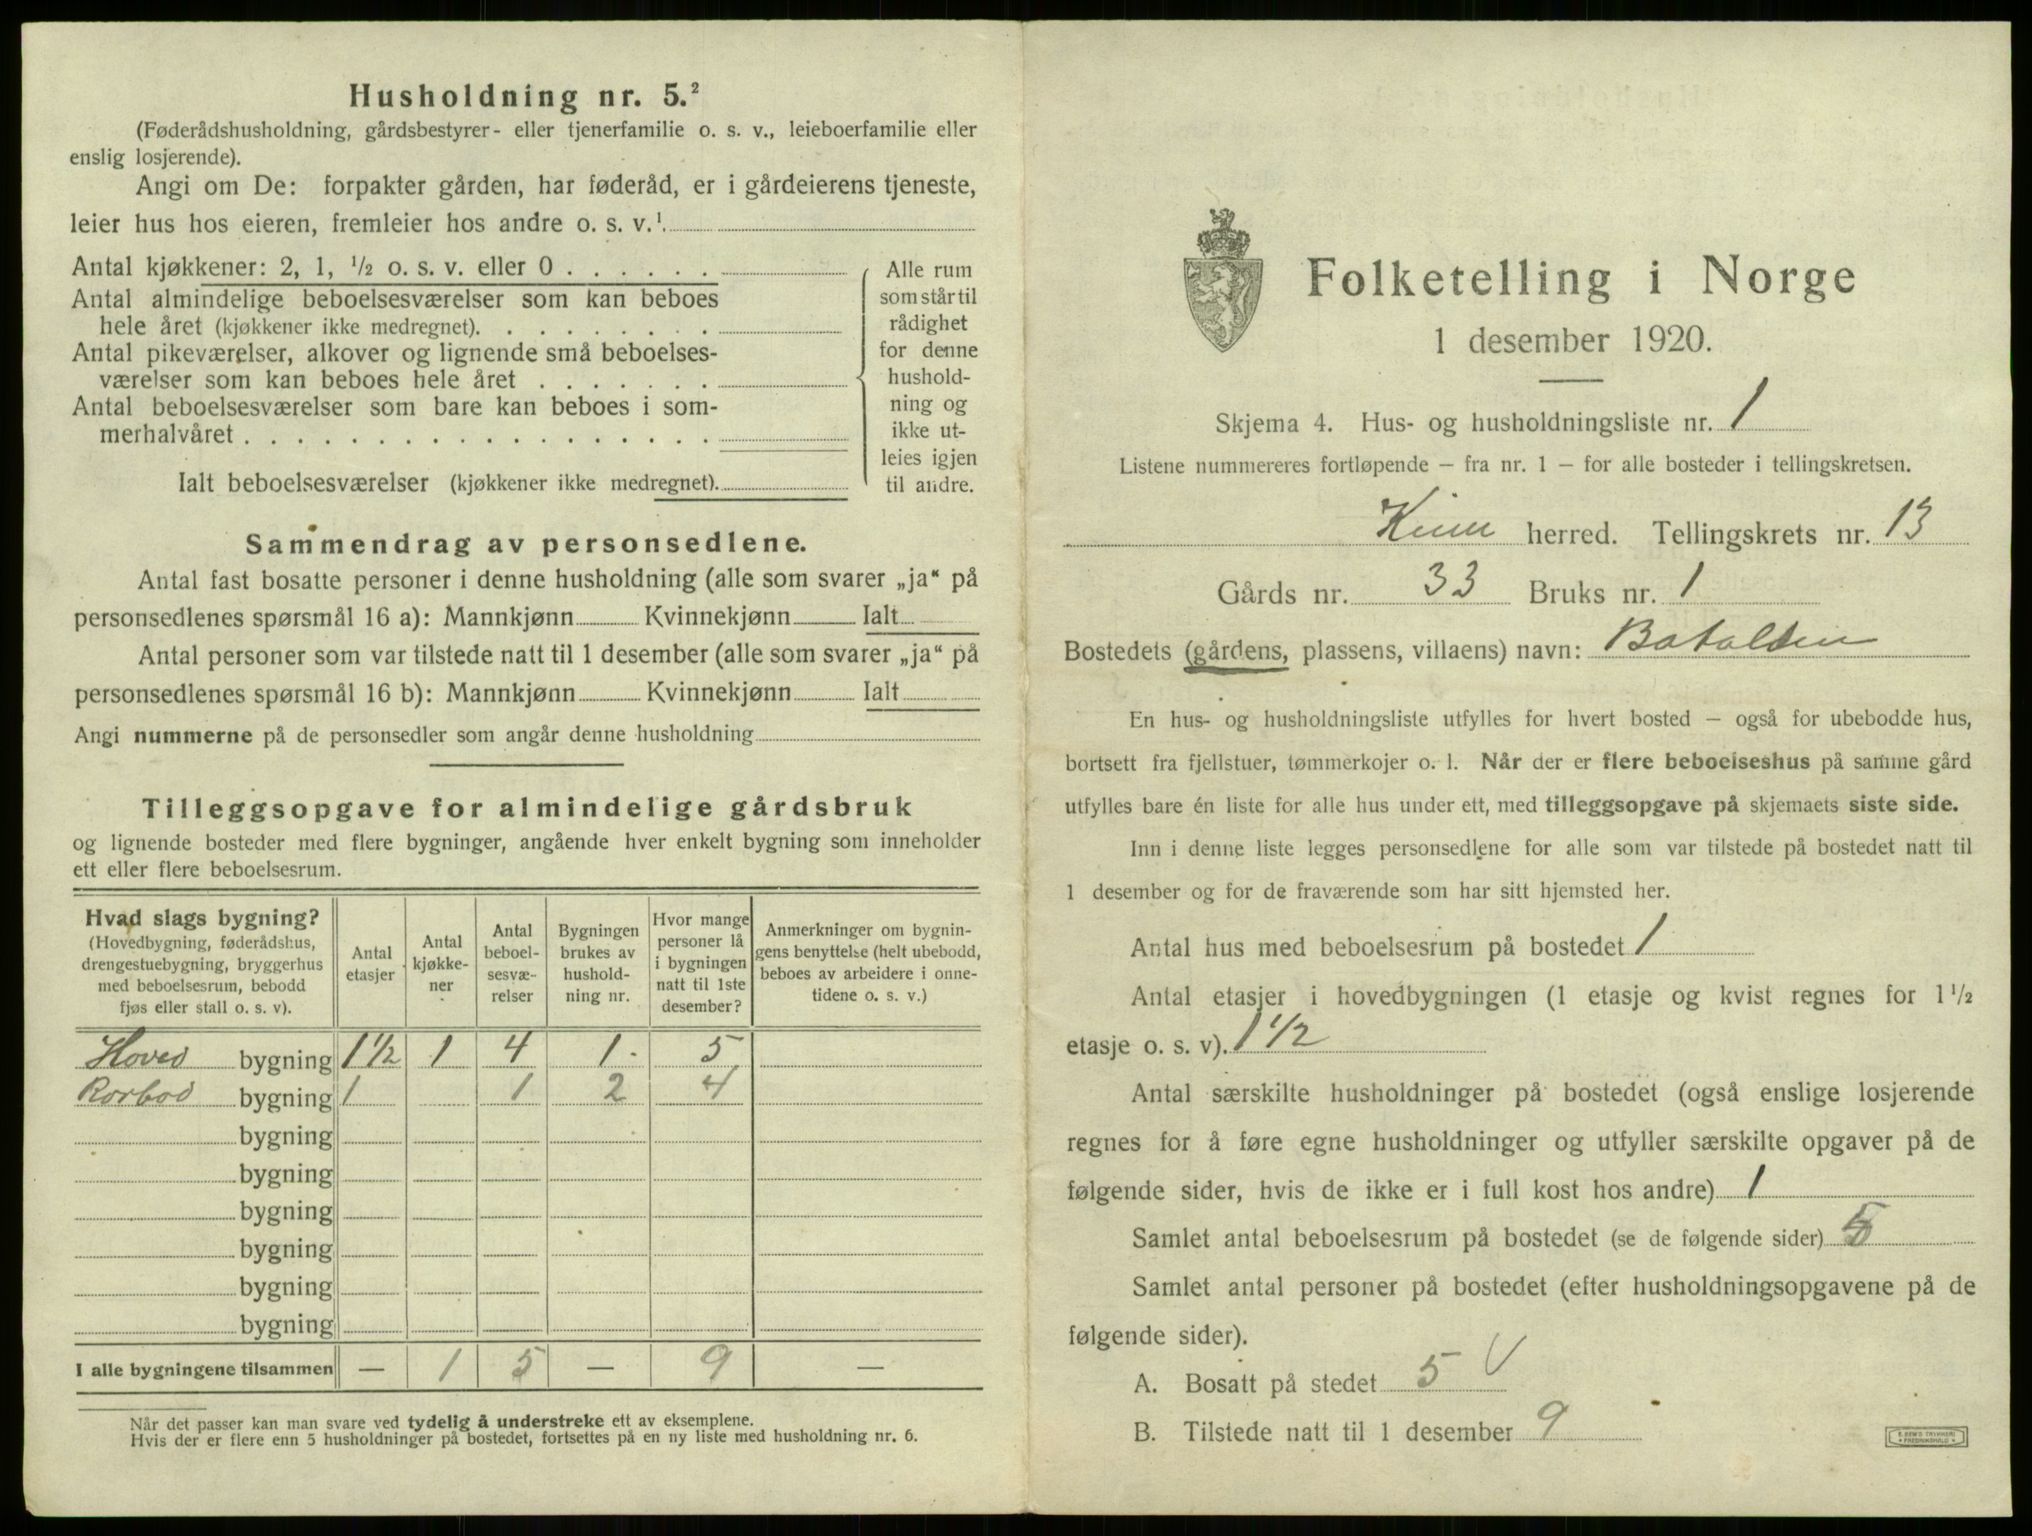 Husholdning nr. 5.²
(Føderådshusholdning, gårdsbestyrer- eller tjenerfamilie o. s. v., leieboerfamilie eller
enslig losjerende).
Angi om De: forpakter gården, har føderåd, er i gårdeierens tjeneste,
leier hus hos eieren, fremleier hos andre o. s. v.¹
Antal kjøkkener: 2, 1, ½ o. s. v. eller 0 . . . . . .
Antal almindelige beboelsesværelser som kan beboes
hele året (kjøkkener ikke medregnet). . . . . . . . .
Antal pikeværelser, alkover og lignende små beboelses-
værelser som kan beboes hele året . . . . . . .
Antal beboelsesværelser som bare kan beboes i som-
merhalvåret . . . . . . . . . . . . . . . . . .
Ialt beboelsesværelser (kjøkkener ikke medregnet).
Alle rum
som står til
rådighet
for denne
hushold-
ning og
ikke ut-
leies igjen
til andre.
Sammendrag av personsedlene.
Antal fast bosatte personer i denne husholdning (alle som svarer „ja“ på
personsedlenes spørsmål 16 a): Mannkjønn Kvinnekjønn Ialt
Antal personer som var tilstede natt til 1 desember (alle som svarer „ja“ på
personsedlenes spørsmål 16 b): Mannkjønn Kvinnekjønn Ialt
Angi nummerne på de personsedler som angår denne husholdning
Tilleggsopgave for almindelige gårdsbruk
og lignende bosteder med flere bygninger, angående hver enkelt bygning som inneholder
ett eller flere beboelsesrum.
Hvad slags bygning?
(Hovedbygning, føderådshus,
drengestuebygning, bryggerhus
med beboelsesrum, bebodd
fjøs eller stall o. s. v).
Antal
etasjer
Antal
kjøkke-
ner
Antal
beboel-
sesvæ-
relser
Bygningen
brukes av
hushold-
ning nr.
Hvor mange
personer lå
i bygningen
natt til 1ste
desember?
Anmerkninger om bygnin-
gens benyttelse (helt ubebodd,
beboes av arbeidere i onne-
tidene o. s. v.)
Hoved bygning 1½ 1 4 1. 5
Rorbod bygning 1 1 2 4
bygning
bygning
bygning
bygning
bygning
bygning
I alle bygningene tilsammen — 1 5 — 9 —
Når det passer kan man svare ved tydelig å understreke ett av eksemplene.
Hvis der er flere enn 5 husholdninger på bostedet, fortsettes på en ny liste med husholdning nr. 6.
Folketelling i Norge
1 desember 1920.
Skjema 4. Hus- og husholdningsliste nr. 1
Listene nummereres fortløpende – fra nr. 1 – for alle bosteder i tellingskretsen.
Kinn herred. Tellingskrets nr. 13
Gårds nr. 33 Bruks nr. 1
Bostedets (gårdens, plassens, villaens) navn: Batalden
En hus- og husholdningsliste utfylles for hvert bosted – også for ubebodde hus,
bortsett fra fjellstuer, tømmerkojer o. l. Når der er flere beboelseshus på samme gård
utfylles bare én liste for alle hus under ett, med tilleggsopgave på skjemaets siste side.
Inn i denne liste legges personsedlene for alle som var tilstede på bostedet natt til
1 desember og for de fraværende som har sitt hjemsted her.
Antal hus med beboelsesrum på bostedet 1
Antal etasjer i hovedbygningen (1 etasje og kvist regnes for 1½
etasje o. s. v). 1½
Antal særskilte husholdninger på bostedet (også enslige losjerende
regnes for å føre egne husholdninger og utfyller særskilte opgaver på de
følgende sider, hvis de ikke er i full kost hos andre) 1
Samlet antal beboelsesrum på bostedet (se de følgende sider) 5
Samlet antal personer på bostedet (efter husholdningsopgavene på de
følgende sider).
A. Bosatt på stedet 5 V
B. Tilstede natt til 1 desember 9